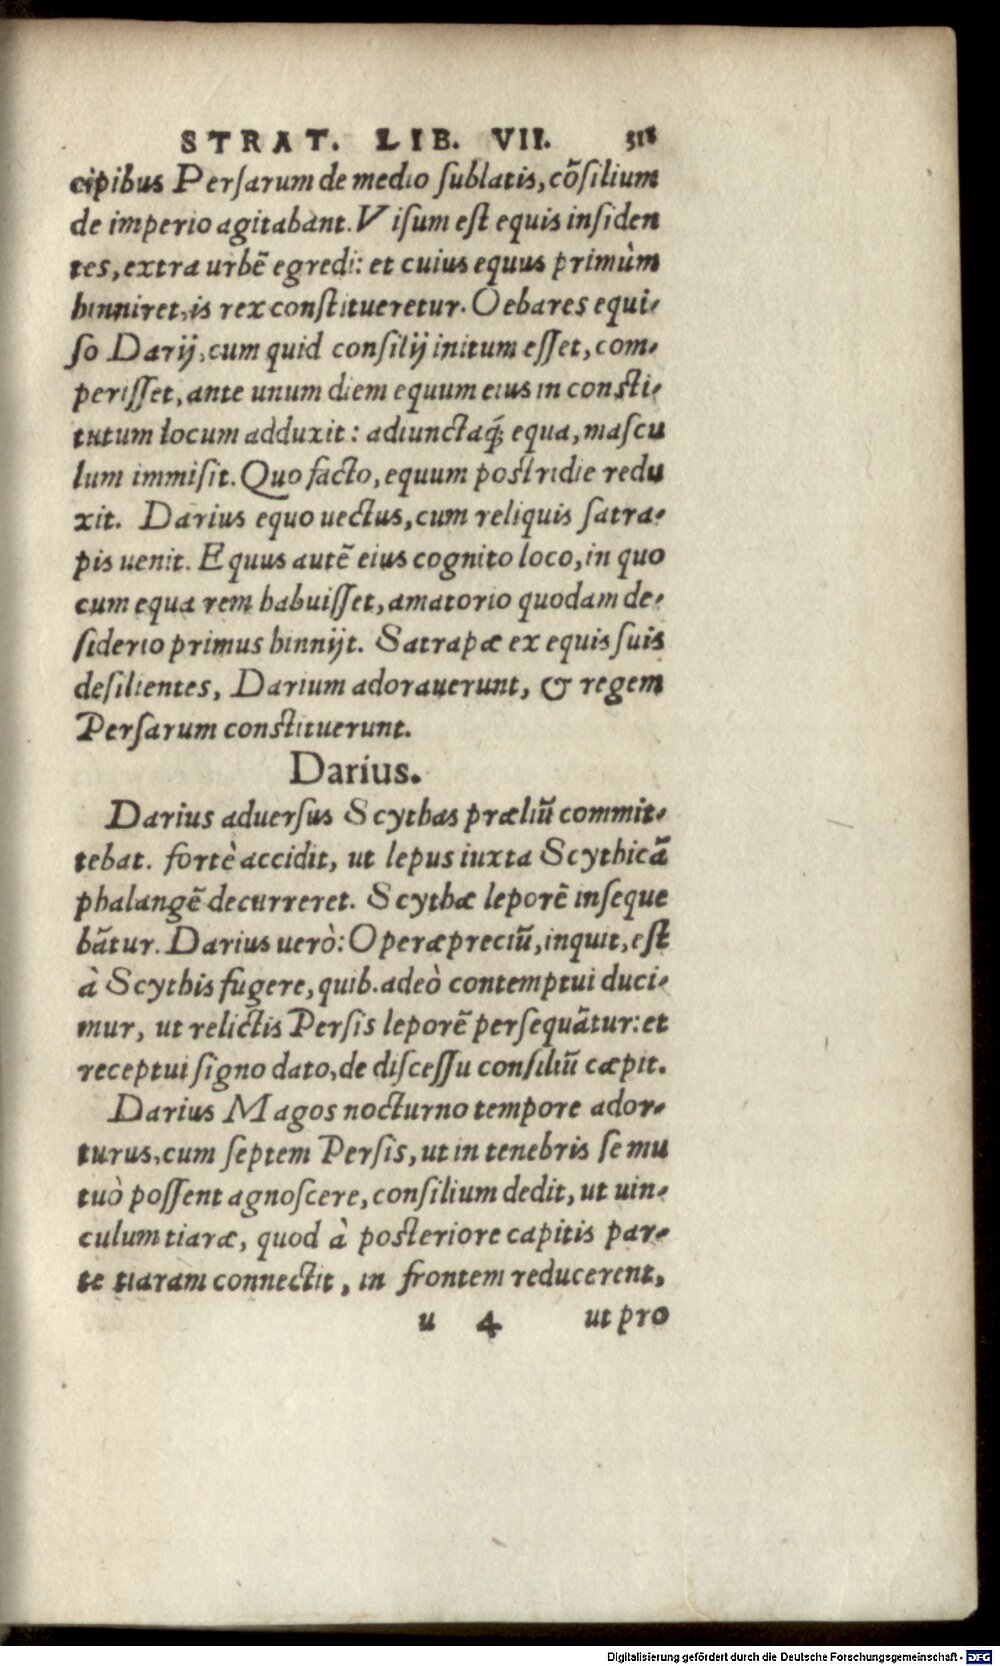 STRAT. LIB. VII. 311
cipibus Persarum de medio sublatis, cōsilium
de imperio agitabant. Visum est equis insiden
tes, extra urbē egredi: et cuius equus primùm
hinniret, is rex constitueretur. Oebares equi-
so Darij, cum quid consilij initum esset, com-
perisset, ante unum diem equum eius in consti-
tutum locum adduxit: adiunctaq́; equa, mascu
lum immisit. Quo facto, equum postridie redu
xit. Darius equo uectus, cum reliquis satra-
pis uenit. Equus autē eius cognito loco, in quo
cum equa rem habuisset, amatorio quodam de-
siderio primus hinnijt. Satrapæ ex equis suis
desilientes, Darium adorauerunt, & regem
Persarum constituerunt.
Darius.
Darius aduersus Scythas præliū commit-
tebat. fortè accidit, ut lepus iuxta Scythicā
phalangē decurreret. Scythæ leporē inseque
bātur. Darius uerò: Operæpreciū, inquit, est
à Scythis fugere, quib. adeò contemptui duci-
mur, ut relictis Persis leporē persequātur: et
receptui signo dato, de discessu consiliū cæpit.
Darius Magos nocturno tempore ador-
turus, cum septem Persis, ut in tenebris se mu
tuò possent agnoscere, consilium dedit, ut uin-
culum tiaræ, quod à posteriore capitis par-
te tiaram connectit, in frontem reducerent,
u 4 ut pro
Digitalisierung gefördert durch die Deutsche Forschungsgemeinschaft - DFG